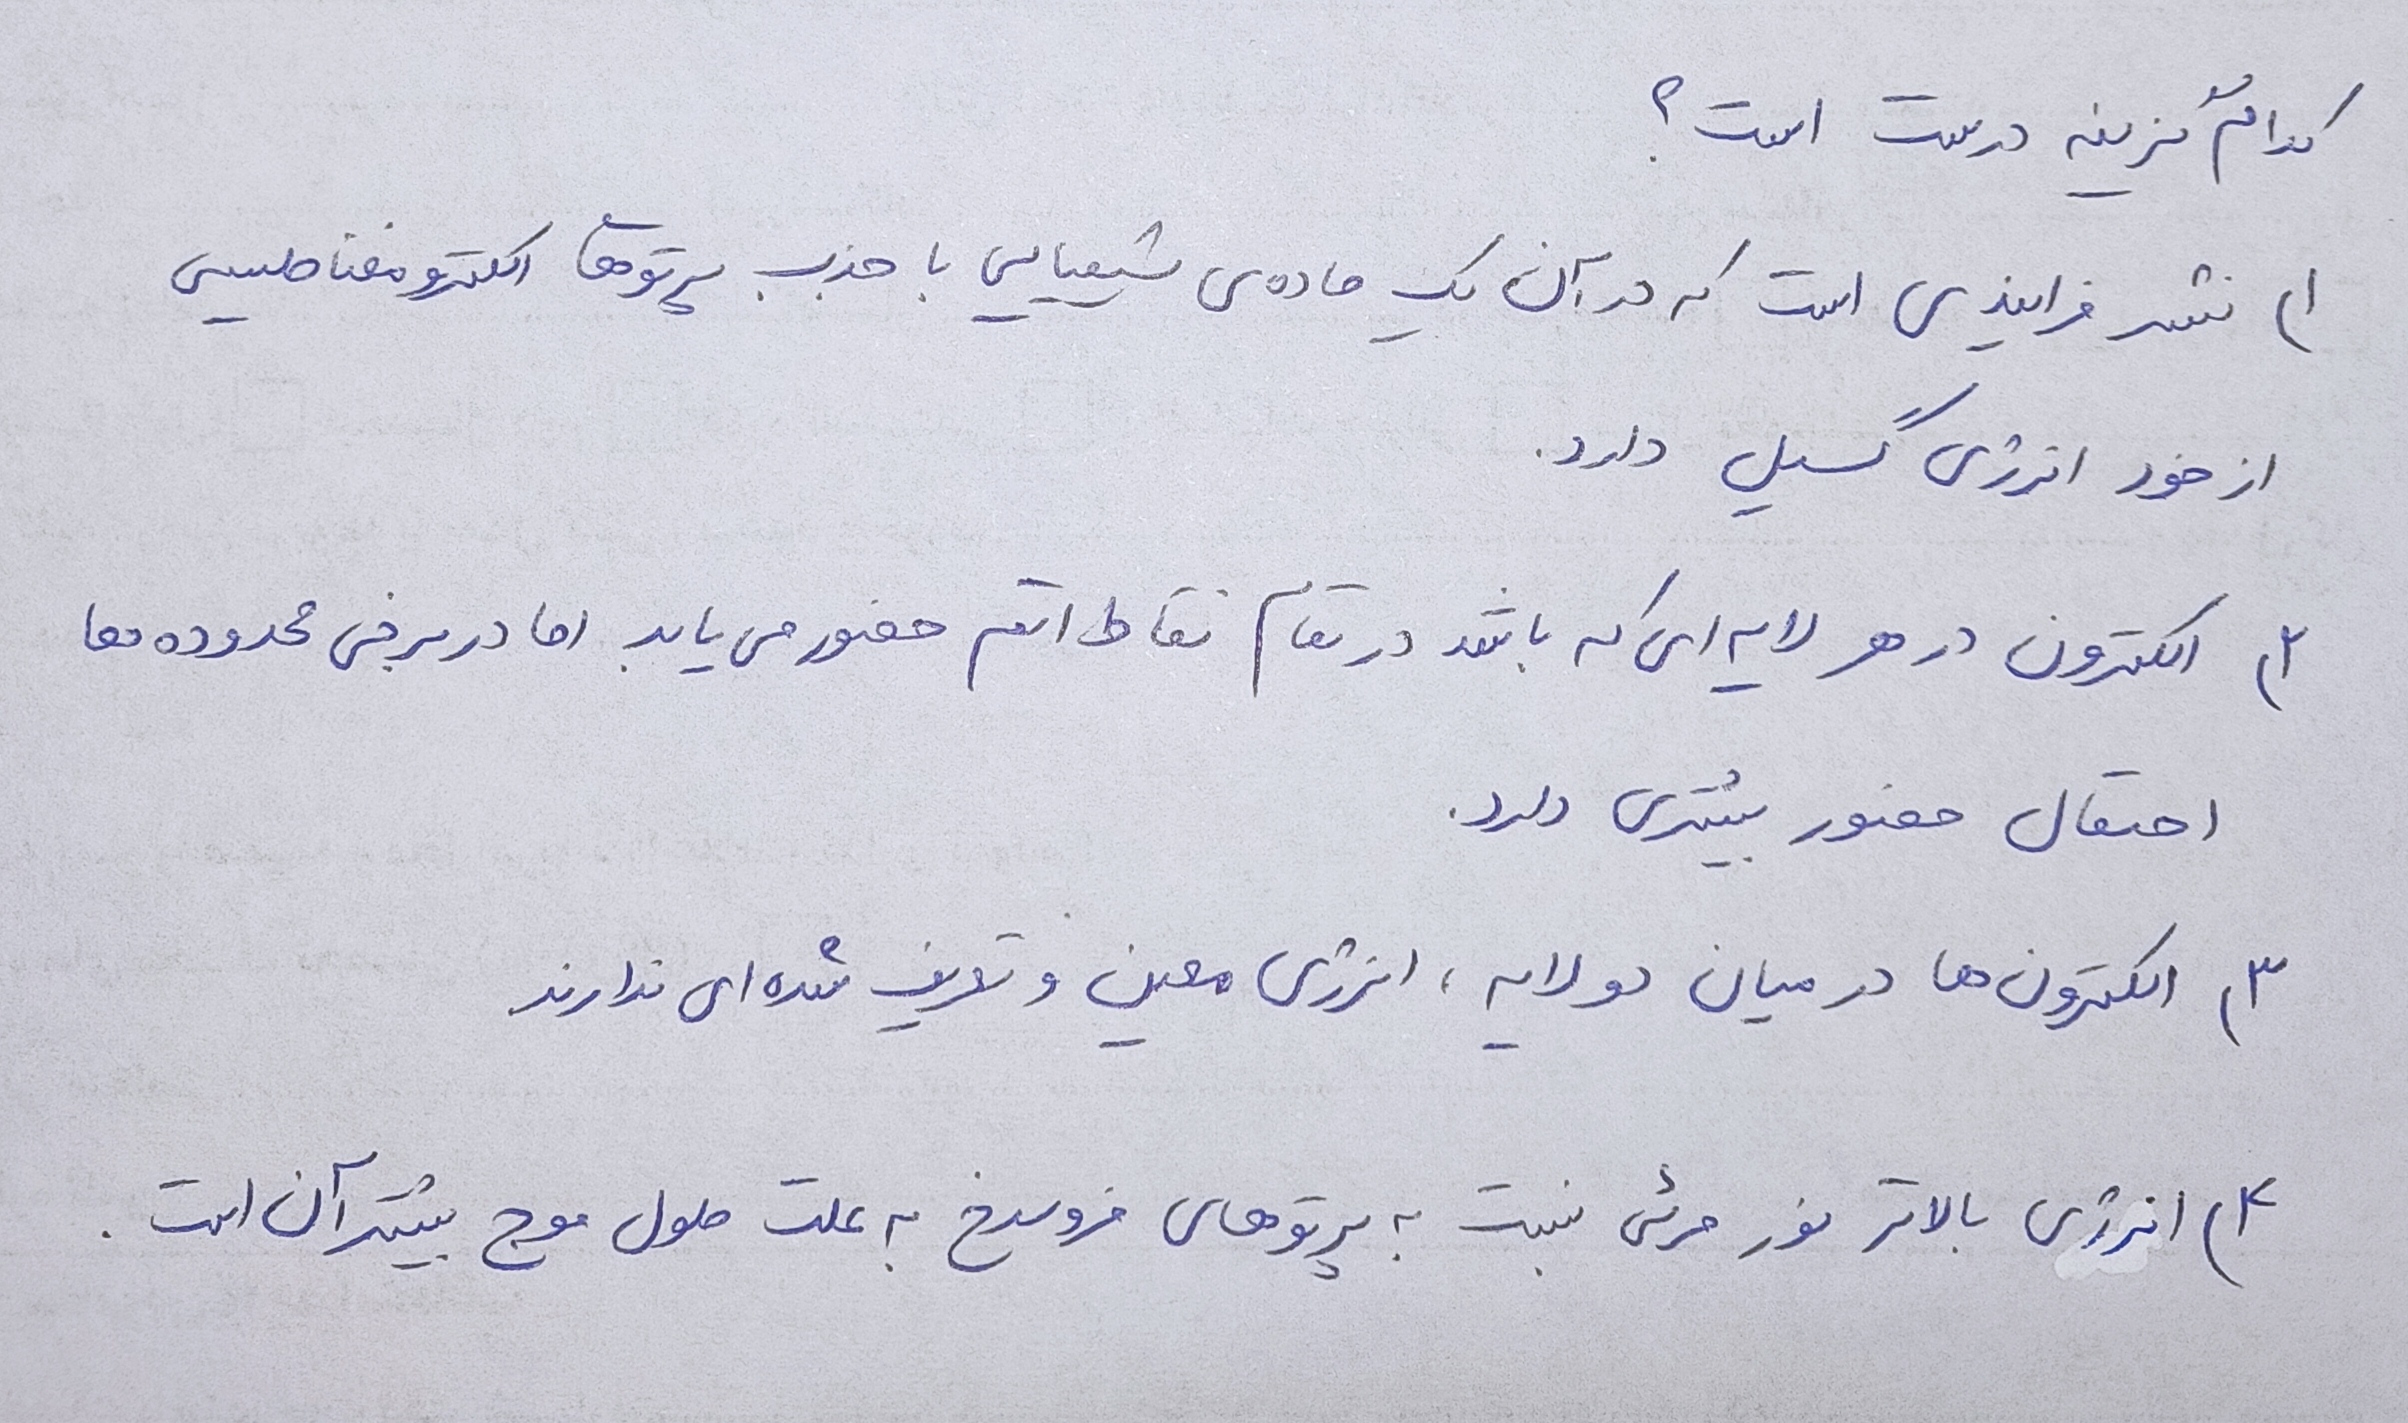 کدام گزینه درست است؟
۱) نشر فرایندی است که در آن یک ماده‌ی شیمیایی با جذب پرتوها الکترومغناطیسی
از خود انرژی گسیل دارد.
۲) الکترون در هر لایه‌ای که باشد در تمام نقاط اتم حضور می‌یابد اما در برخی محدوده‌ها
احتمال حضور بیشتری دارد.
۳) الکترون‌ها در میان دو لایه، انرژی معین و تعریف شده‌ای ندارند
۴) انرژی بالاتر نور مرئی نسبت به پرتوهای فروسرخ به علت طول موج بیشتر آن است.